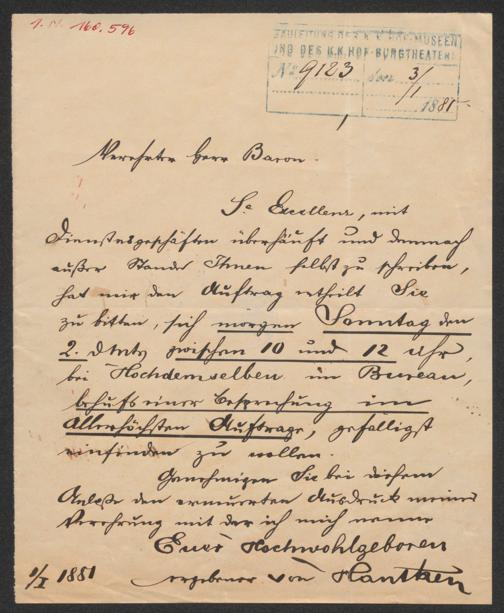 I. N. 166.596
BAULEITUNG DER K.K. HOF-MUSEEN
UND DES K.K. HOF-BURGTHEATERS
No 9123 3/1
1881
Verehrter Herr Baron.
Se Excellenz, mit
Dienstesgeschäften überhäuft und demnach
außer Stande Ihnen selbst zu schreiben,
hat mir den Auftrag ertheilt Sie
zu bitten, sich morgen Sonntag den
2. dMts zwischen 10 und 12 Uhr,
bei Hochdemselben im Bureau,
behufs einer Besprechung im
Allerhöchsten Auftrage, gefälligst
einfinden zu wollen.
Genehmigen Sie bei diesem
Anlaße den erneuerten Ausdruck meiner
Verehrung mit der ich mich nenne
Euer Hochwohlgeboren
1/I 1881 ergebener von Hantken